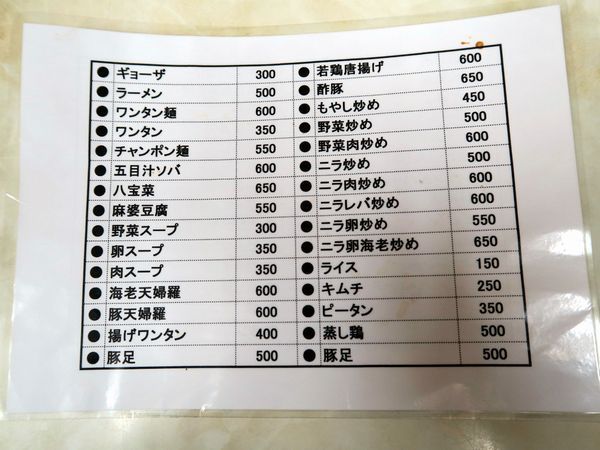 ● ギョーザ 300
● ラーメン 500
● ワンタン麺 600
● ワンタン 350
● チャンポン麺 550
● 五目汁ソバ 600
● 八宝菜 650
● 麻婆豆腐 550
● 野菜スープ 300
● 卵スープ 350
● 肉スープ 350
● 海老天婦羅 600
● 豚天婦羅 600
● 揚げワンタン 400
● 豚足 500
● 若鶏唐揚げ 600
● 酢豚 650
● もやし炒め 450
● 野菜炒め 500
● 野菜肉炒め 600
● ニラ炒め 500
● ニラ肉炒め 600
● ニラレバ炒め 600
● ニラ卵炒め 550
● ニラ卵海老炒め 650
● ライス 150
● キムチ 250
● ピータン 350
● 蒸し鶏 500
● 豚足 500